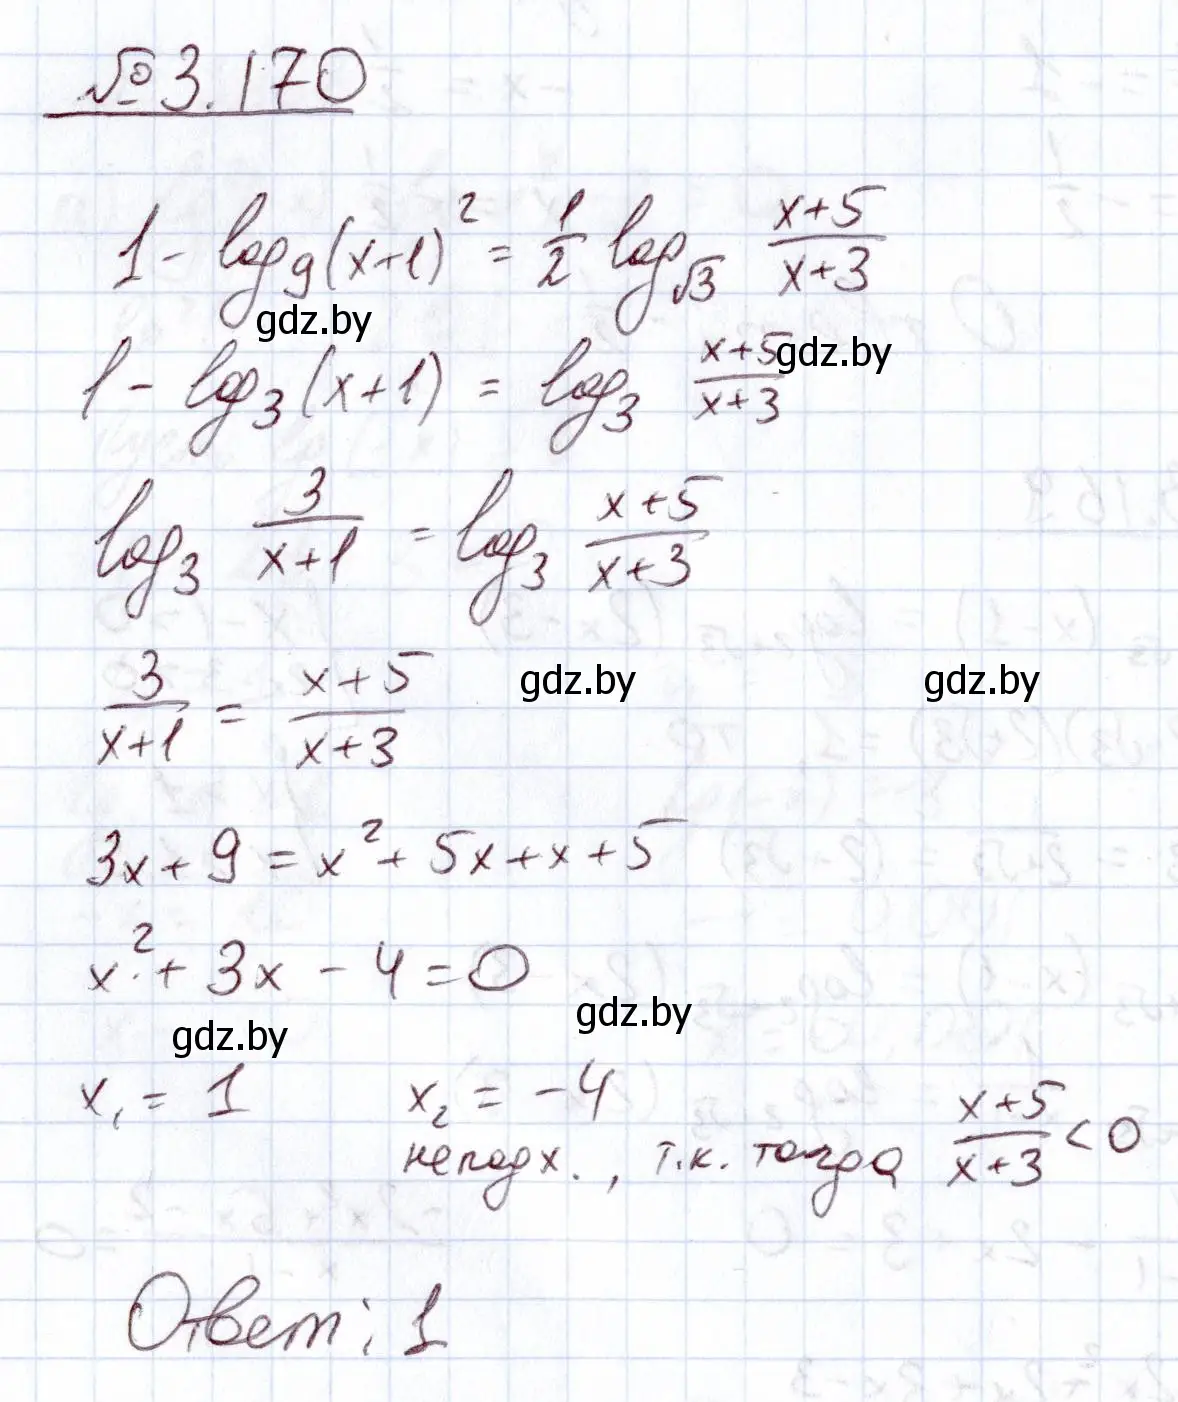 № 3.170
1 - log₉(x+1)² = 1/2 log_√3 (x+5)/(x+3)
gdz.by
1 - log₃(x+1) = log₃ (x+5)/(x+3)
gdz.by
log₃ 3/(x+1) = log₃ (x+5)/(x+3)
3/(x+1) = (x+5)/(x+3)
gdz.by gdz.by
3x + 9 = x² + 5x + x + 5
x² + 3x - 4 = 0
gdz.by gdz.by
x₁ = 1 x₂ = -4
не подх., т.к. тогда (x+5)/(x+3) < 0
Ответ: 1